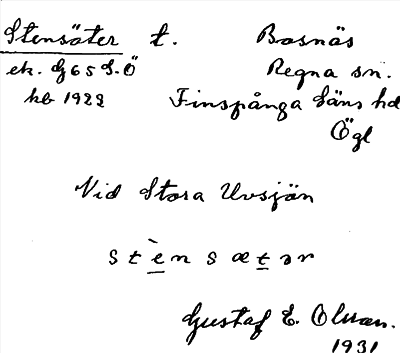 Stensäter t. Bosnäs
ek. G65 S.Ö Regna sn.
kb 1922 Finspånga läns hd
Ögl
Vid Stora Uvsjön
stènsætər
Gustaf E. Olsson.
1931